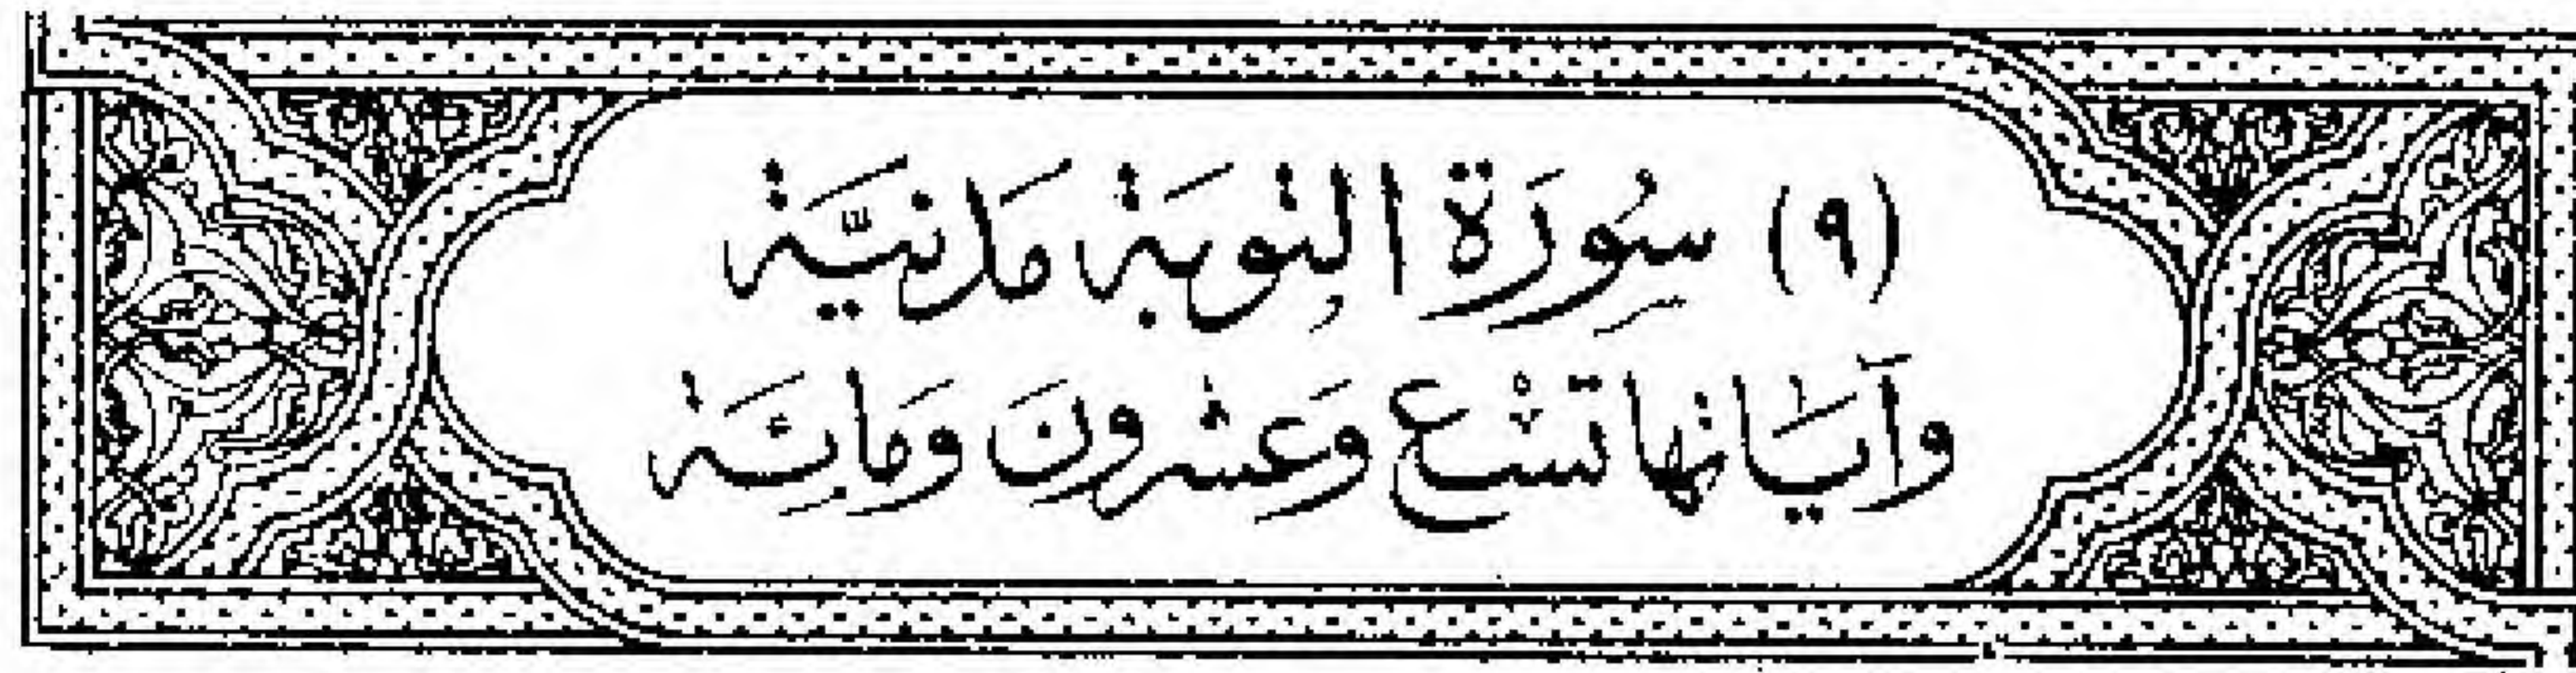 (٩) سُورَة التوبَة مَدَنيَّة
وَآيَاتها تسْع وَعشرُونَ وَمائَة